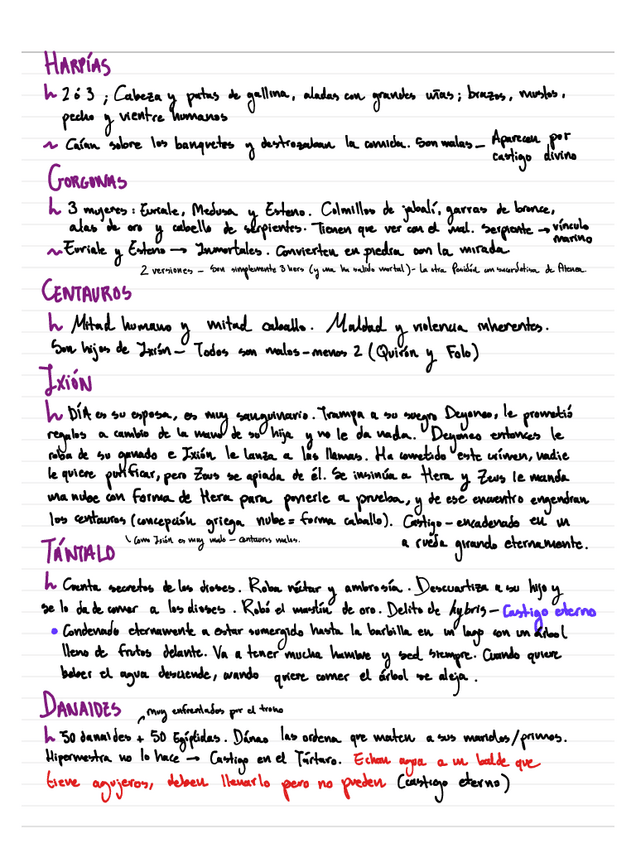 HARPÍAS
↳ 2 ó 3 ; Cabeza y patas de gallina, aladas con grandes uñas ; brazos, muslos,
pecho y vientre humanos
~ Caían sobre los banquetes y destrozaban la comida. Son malas — Aparecen por
castigo divino
GORGONAS
↳ 3 mujeres : Euriale, Medusa y Esteno. Colmillos de jabalí, garras de bronce,
alas de oro y cabello de serpientes. Tienen que ver con el mal. Serpiente → vínculo
marino
~ Euriale y Esteno → Inmortales. Convierten en piedra con la mirada
2 versiones – Son simplemente 3 hers (y una ha salido mortal) – La otra sacerdotisa de Atenea.
CENTAUROS
↳ Mitad humano y mitad caballo. Maldad y violencia inherentes.
Son hijos de Ixión – Todos son malos – menos 2 (Quirón y Folo)
IXIÓN
↳ DÍA es su esposa, es muy sanguinario. Trampa a su suegro Deyoneo, le prometió
regalos a cambio de la mano de su hija y no le da nada. Deyoneo entonces le
roba de su ganado e Ixión le lanza a las llamas. Ha cometido este crimen, nadie
le quiere purificar, pero Zeus se apiada de él. Se insinúa a Hera y Zeus le manda
una nube con forma de Hera para ponerle a prueba, y de ese encuentro engendran
los centauros (concepción griega nube = forma caballo). Castigo – encadenado en un
a rueda girando eternamente.
Como Ixión es muy malo – centauros malos.
TÁNTALO
↳ Cuenta secretos de los dioses. Roba néctar y ambrosía. Descuartiza a su hijo y
se lo da de comer a los dioses. Robó el mastín de oro. Delito de hybris – Castigo eterno
• Condenado eternamente a estar somergido hasta la barbilla en un lago con un árbol
lleno de frutos delante. Va a tener mucha hambre y sed siempre. Cuando quiere
beber el agua desciende, cuando quiere comer el árbol se aleja.
DANAIDES muy enfrentados por el trono
↳ 50 danaides + 50 Egíptidas. Dánao las ordena que maten a sus maridos/primos.
Hipermestra no lo hace → Castigo en el Tártaro. Echan agua a un balde que
tiene agujeros, deben llenarlo pero no pueden (castigo eterno)